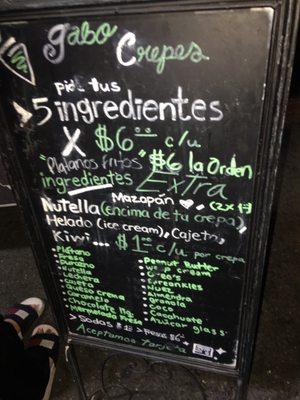 Gabo Crepes
pide tus
5 ingredientes
X $6.00 c/u
"Platanos fritos" $6 la Orden
ingredientes Extra
Mazapán (2x1)
Nutella (encima de tu crepa)
Helado (ice cream), Cajeta,
Kiwi... $1.00 c/u por crepa
• Plátano
• Fresa
• Durazno
• Nutella
• Lechera
• Cajeta
• Queso crema
• Caramelo
• Chocolate
• Mermelada Fresa
• Peanut Butter
• Cream
• Nuez
• Almendra
• Granola
• Coco
• Cacahuate
• Azúcar glass
• Sodas
Aceptamos tarjeta